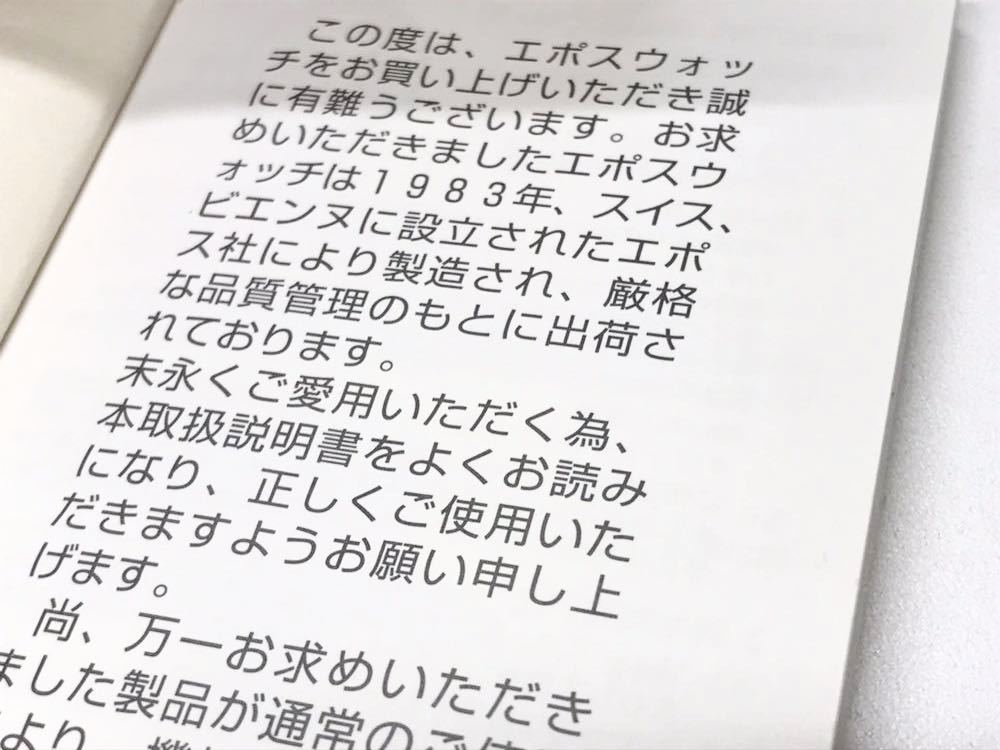 この度は、エポスウォッ
チをお買い上げいただき誠
に有難うございます。お求
めいただきましたエポスウ
ォッチは１９８３年、スイス、
ビエンヌに設立されたエポ
ス社により製造され、厳格
な品質管理のもとに出荷さ
れております。
末永くご愛用いただく為、
本取扱説明書をよくお読み
になり、正しくご使用いた
だきますようお願い申し上
げます。
尚、万一お求めいただき
ました製品が通常のご使
より、機